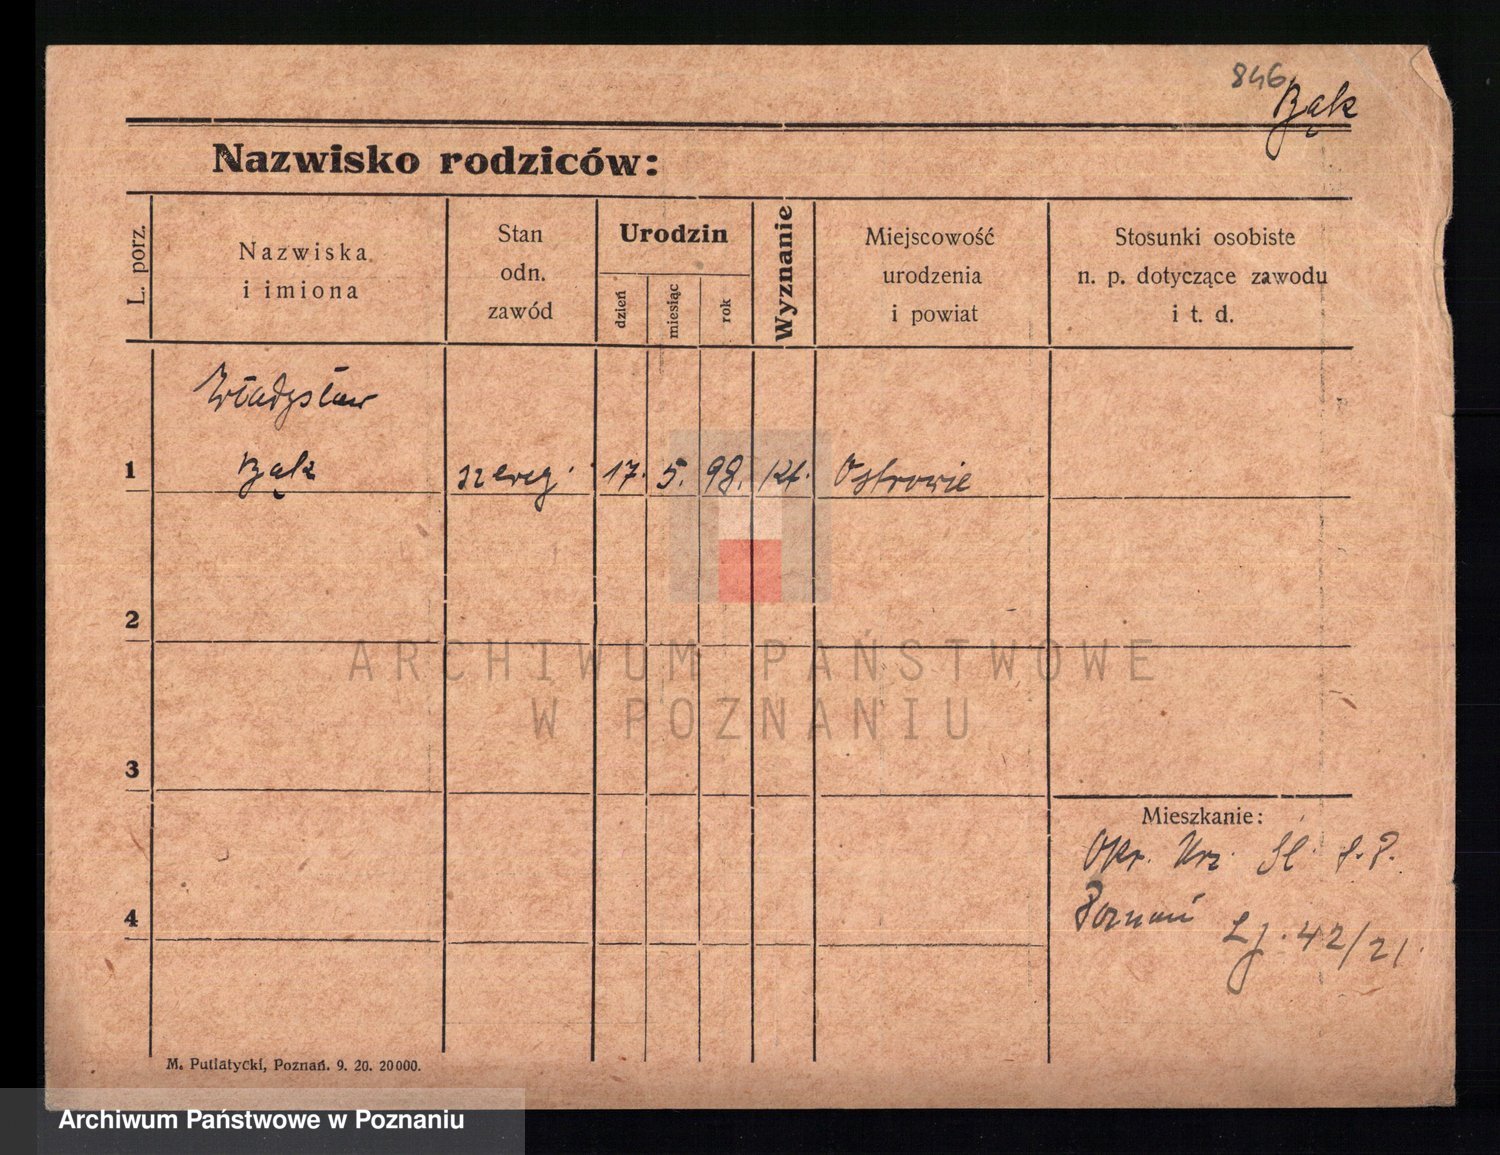 846
Bąk
Nazwisko rodziców:
L. porz.
Nazwiska
i imiona
Stan
odn.
zawód
Urodzin
dzień
miesiąc
rok
Wyznanie
Miejscowość
urodzenia
i powiat
Stosunki osobiste
n. p. dotyczące zawodu
i t. d.
Władysław
1 Bąk szereg. 17. 5. 98. kt. Ostrowie
2
3
4
ARCHIWUM PAŃSTWOWE
W POZNANIU
Mieszkanie:
Okr. Urz. Sl. P.
Poznań
Lj. 42/21.
M. Putiatycki, Poznań. 9. 20. 20000.
Archiwum Państwowe w Poznaniu